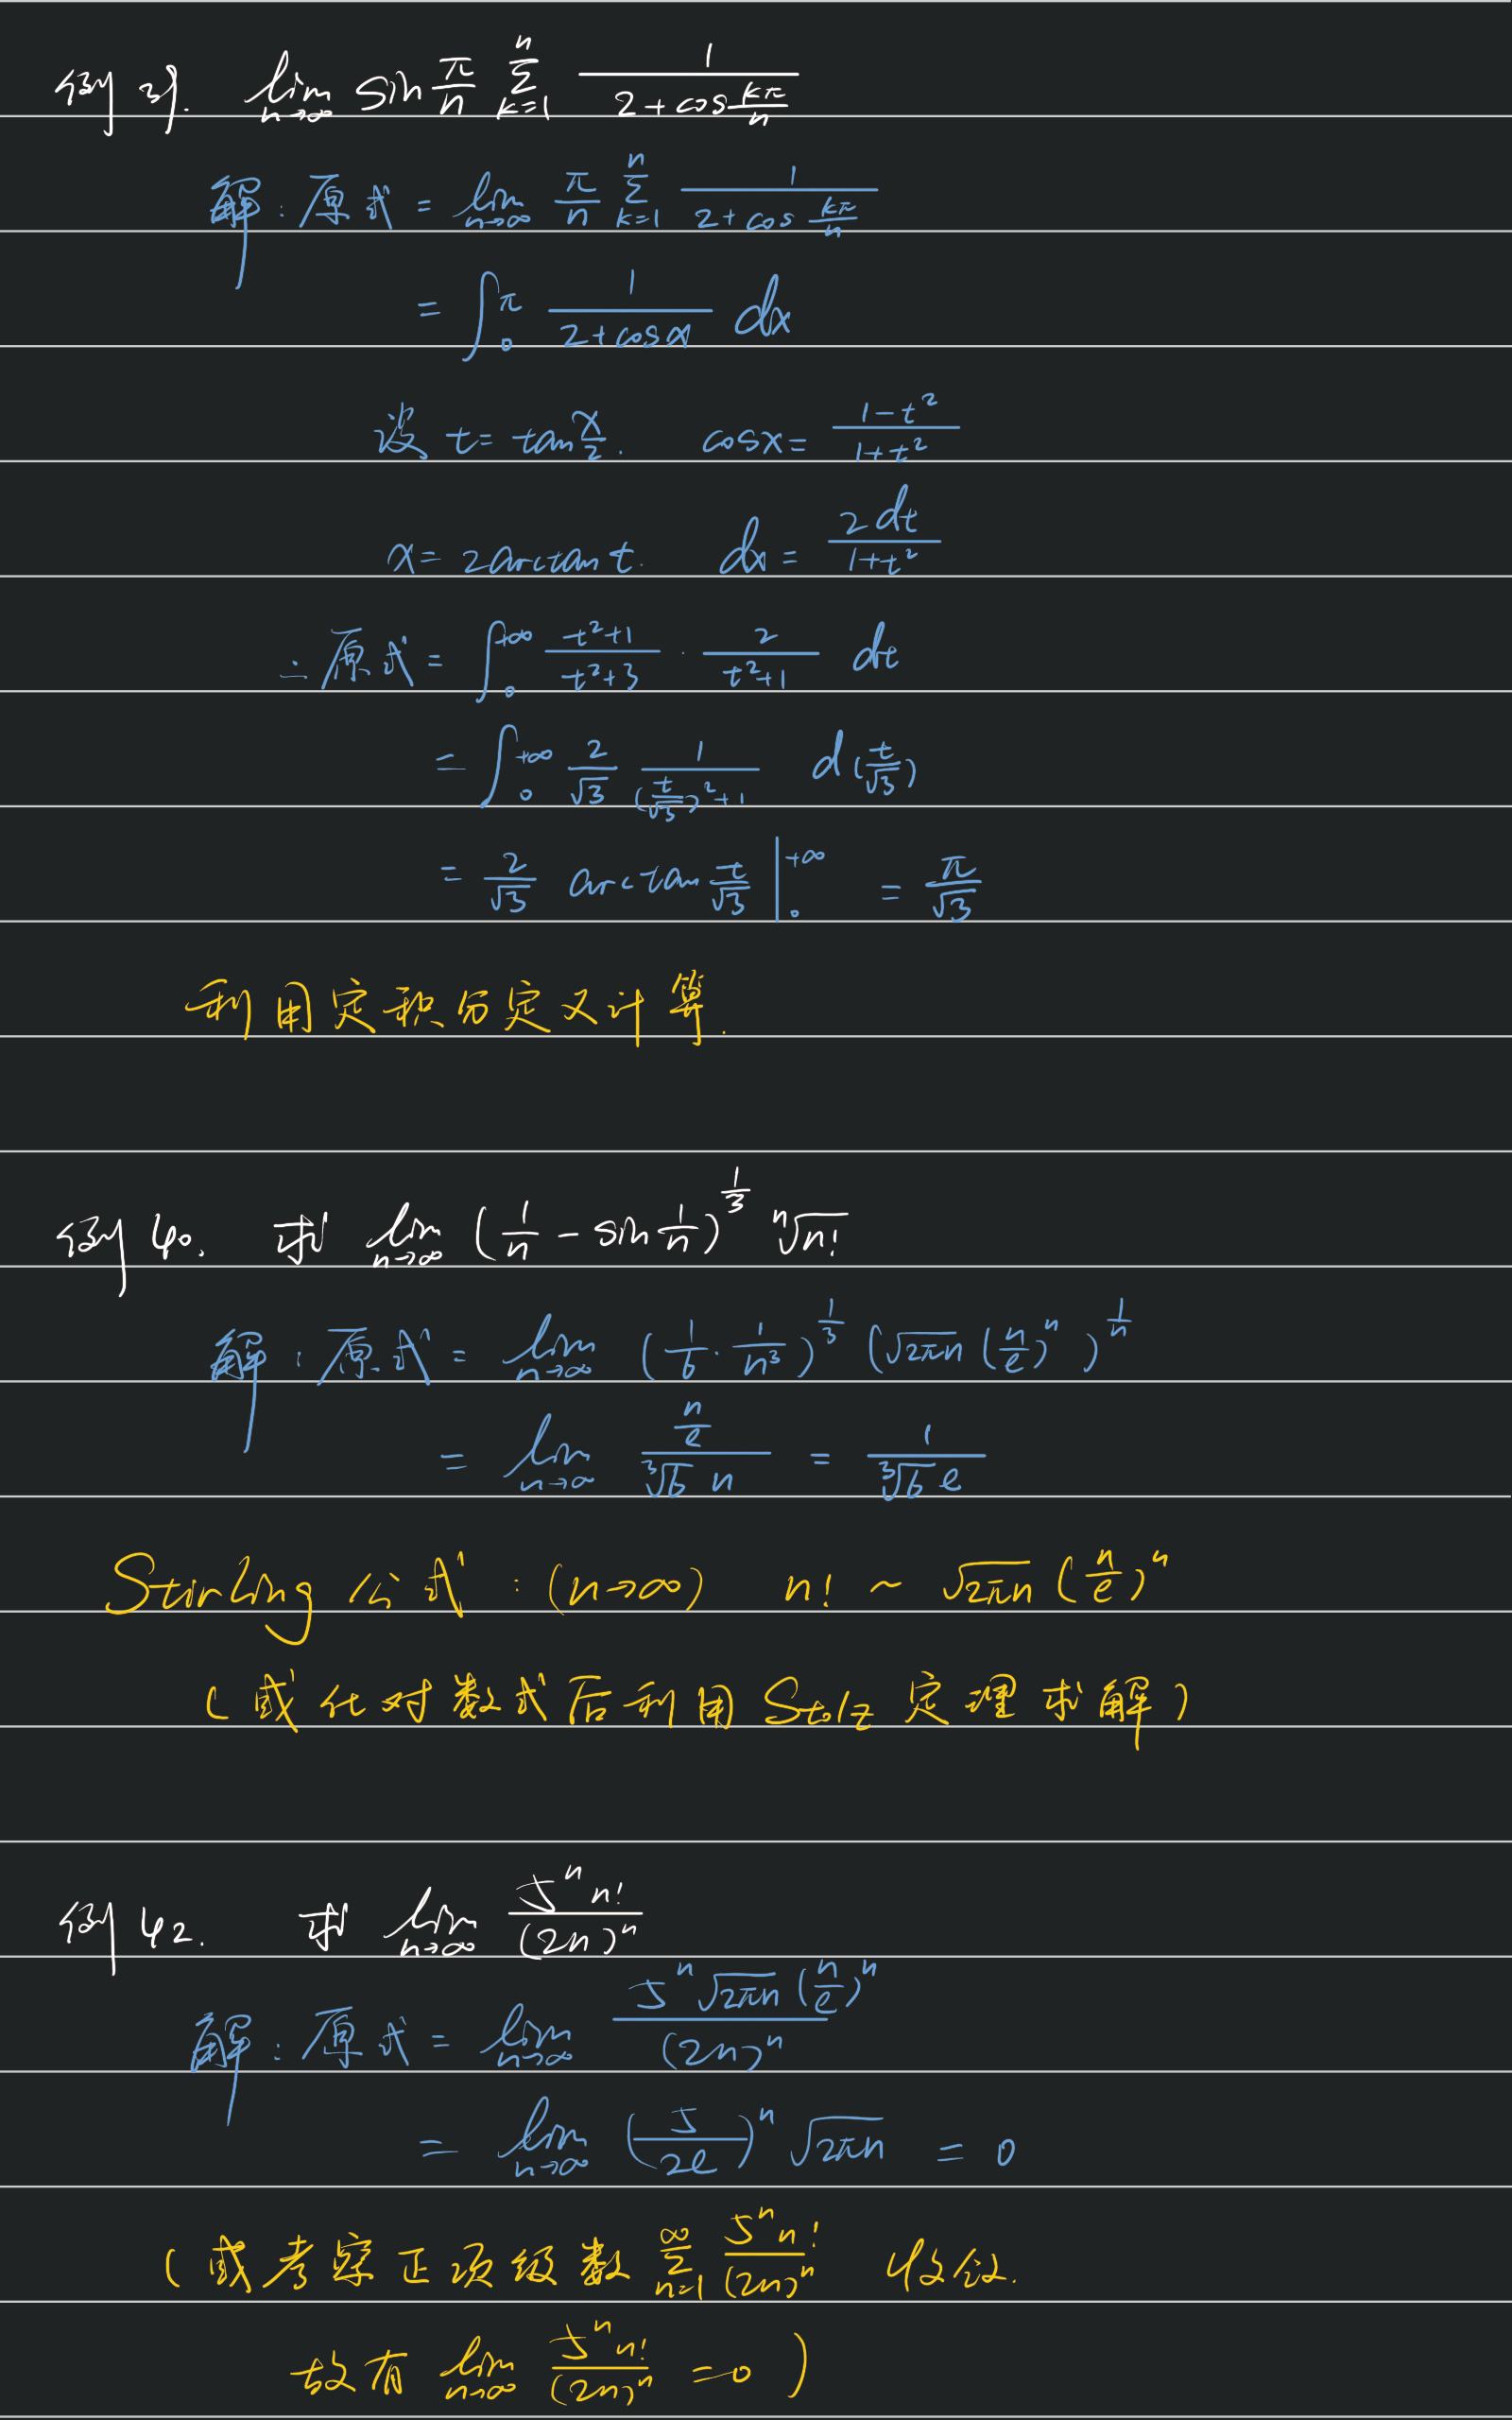 例39. lim_{n→∞} sin π/n ∑_{k=1}^{n} 1/(2+cos kπ/n)
解:原式 = lim_{n→∞} π/n ∑_{k=1}^{n} 1/(2+cos kπ/n)
= ∫_0^π 1/(2+cosx) dx
设 t = tan x/2. cosx = (1-t²)/(1+t²)
x = 2arctan t. dx = 2dt/(1+t²)
∴ 原式 = ∫_0^{+∞} (t²+1)/(t²+3) · 2/(t²+1) dt
= ∫_0^{+∞} 2/√3 1/((t/√3)²+1) d(t/√3)
= 2/√3 arctan t/√3 |_0^{+∞} = π/√3
利用定积分定义计算.
例40. 求 lim_{n→∞} (1/n - sin 1/n)^{1/3} ⁿ√n!
解:原式 = lim_{n→∞} (1/6 · 1/n³)^{1/3} (√(2πn) (n/e)^n)^{1/n}
= lim_{n→∞} (n/e)/(³√6 n) = 1/(³√6 e)
Stirling 公式:(n→∞) n! ~ √(2πn) (n/e)^n
(或化对数式后利用 Stolz 定理求解)
例42. 求 lim_{n→∞} 5^n n!/(2n)^n
解:原式 = lim_{n→∞} 5^n √(2πn) (n/e)^n/(2n)^n
= lim_{n→∞} (5/2e)^n √(2πn) = 0
(或考察正项级数 ∑_{n=1}^{∞} 5^n n!/(2n)^n 收敛.
故有 lim_{n→∞} 5^n n!/(2n)^n = 0)